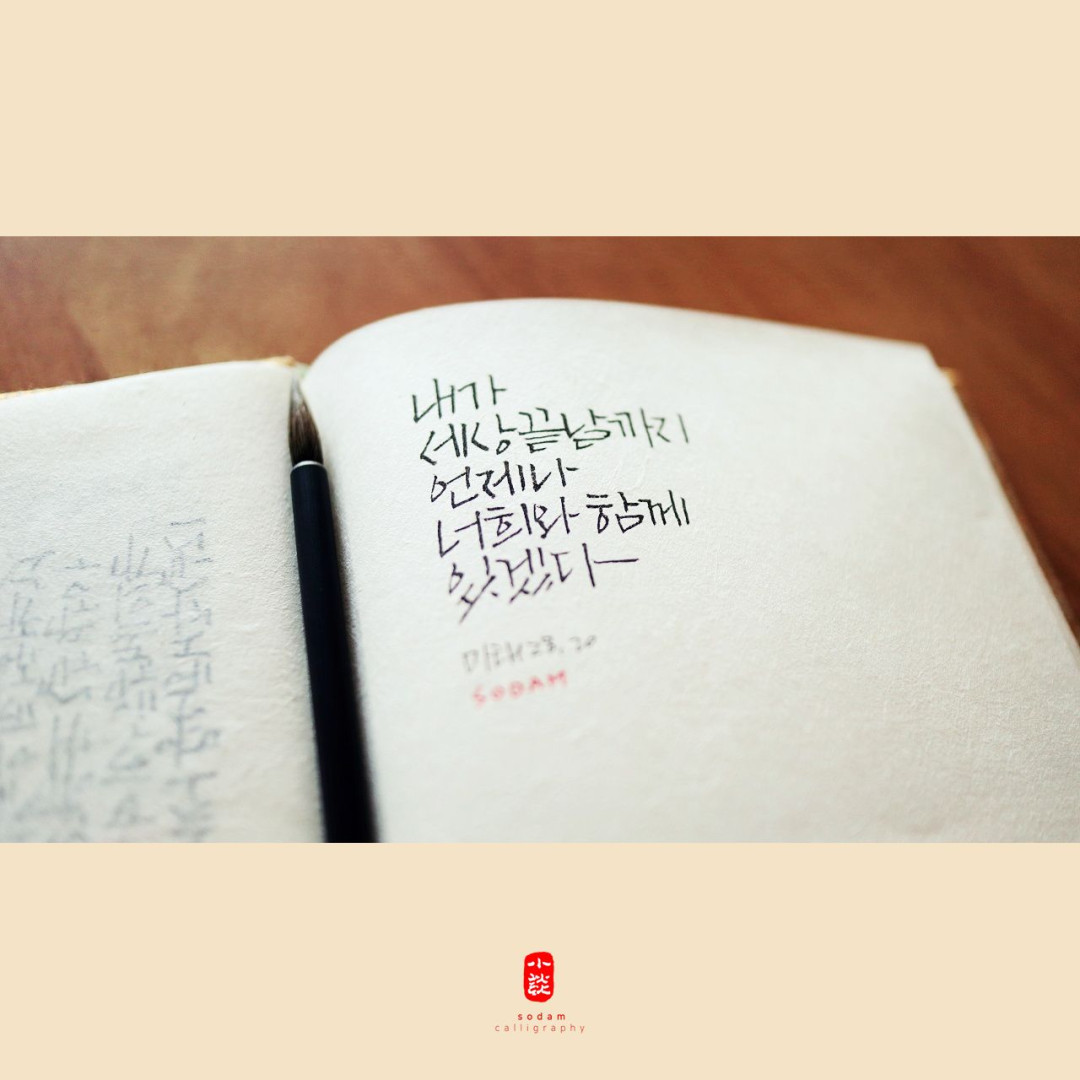 내가
세상끝날까지
언제나
너희와 함께
있겠다
마태 28. 20
SODAM
小談
sodam
calligraphy